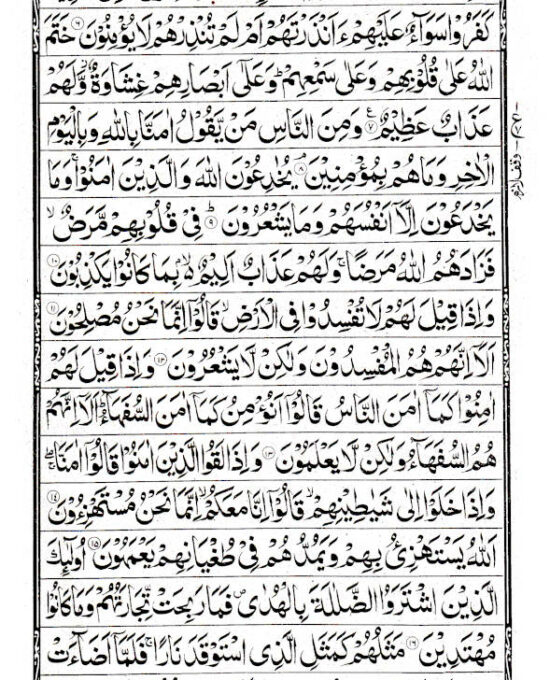 كَفَرُوْا سَوَآءٌ عَلَيْهِمْ ءَاَنْذَرْتَهُمْ اَمْ لَمْ تُنْذِرْهُمْ لَا يُؤْمِنُوْنَ ۝۶ خَتَمَ
اللّٰهُ عَلٰى قُلُوْبِهِمْ وَعَلٰى سَمْعِهِمْ ؕ وَعَلٰٓى اَبْصَارِهِمْ غِشَاوَةٌ ؗ وَّلَهُمْ
عَذَابٌ عَظِيْمٌ ۝۷ وَمِنَ النَّاسِ مَنْ يَّقُوْلُ اٰمَنَّا بِاللّٰهِ وَبِالْيَوْمِ
الْاٰخِرِ وَمَا هُمْ بِمُؤْمِنِيْنَ ۝۸ يُخٰدِعُوْنَ اللّٰهَ وَالَّذِيْنَ اٰمَنُوْا ۚ وَمَا
يَخْدَعُوْنَ اِلَّاۤ اَنْفُسَهُمْ وَمَا يَشْعُرُوْنَ ۝۹ فِيْ قُلُوْبِهِمْ مَّرَضٌ ۙ
فَزَادَهُمُ اللّٰهُ مَرَضًا ۚ وَلَهُمْ عَذَابٌ اَلِيْمٌۢ ۙ۬ بِمَا كَانُوْا يَكْذِبُوْنَ ۝۱۰
وَاِذَا قِيْلَ لَهُمْ لَا تُفْسِدُوْا فِي الْاَرْضِ ۙ قَالُوْۤا اِنَّمَا نَحْنُ مُصْلِحُوْنَ ۝۱۱
اَلَاۤ اِنَّهُمْ هُمُ الْمُفْسِدُوْنَ وَلٰكِنْ لَّا يَشْعُرُوْنَ ۝۱۲ وَاِذَا قِيْلَ لَهُمْ
اٰمِنُوْا كَمَاۤ اٰمَنَ النَّاسُ قَالُوْۤا اَنُؤْمِنُ كَمَاۤ اٰمَنَ السُّفَهَآءُ ؕ اَلَاۤ اِنَّهُمْ
هُمُ السُّفَهَآءُ وَلٰكِنْ لَّا يَعْلَمُوْنَ ۝۱۳ وَاِذَا لَقُوا الَّذِيْنَ اٰمَنُوْا قَالُوْۤا اٰمَنَّا ۖۚ
وَاِذَا خَلَوْا اِلٰى شَيٰطِيْنِهِمْ ۙ قَالُوْۤا اِنَّا مَعَكُمْ ۙ اِنَّمَا نَحْنُ مُسْتَهْزِءُوْنَ ۝۱۴
اَللّٰهُ يَسْتَهْزِئُ بِهِمْ وَيَمُدُّهُمْ فِيْ طُغْيَانِهِمْ يَعْمَهُوْنَ ۝۱۵ اُولٰٓئِكَ
الَّذِيْنَ اشْتَرَوُا الضَّلٰلَةَ بِالْهُدٰى ۪ فَمَا رَبِحَتْ تِّجَارَتُهُمْ وَمَا كَانُوْا
مُهْتَدِيْنَ ۝۱۶ مَثَلُهُمْ كَمَثَلِ الَّذِي اسْتَوْقَدَ نَارًا ۚ فَلَمَّاۤ اَضَآءَتْ